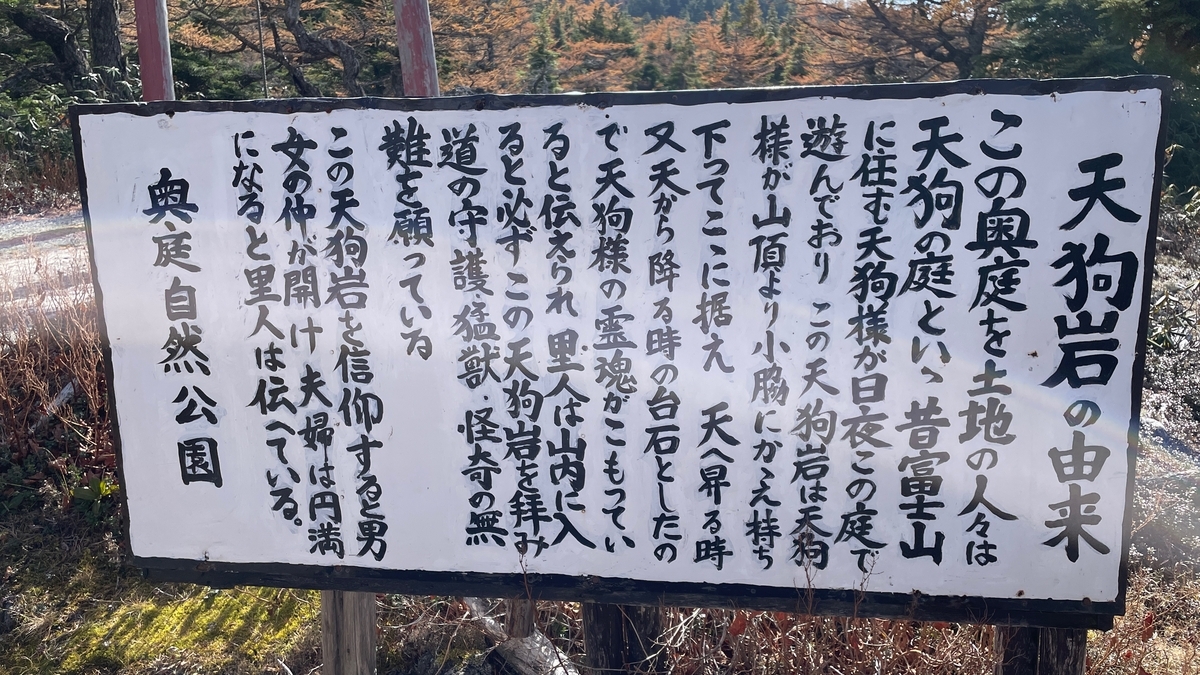 天狗岩の由来
この奥庭を土地の人々は
天狗の庭といゝ昔富士山
に住む天狗様が日夜この庭で
遊んでおり この天狗岩は天狗
様が山頂より小脇にかゝえ持ち
下ってここに据え 天へ昇る時
又天から降る時の台石としたの
で天狗様の霊魂がこもってい
ると伝えられ 里人は山内に入
ると必ずこの天狗岩を拝み
道の守護 猛獣・怪奇の無
難を願っている
この天狗岩を信仰すると男
女の仲が開け 夫婦は円満
になると里人は伝へている。
奥庭自然公園